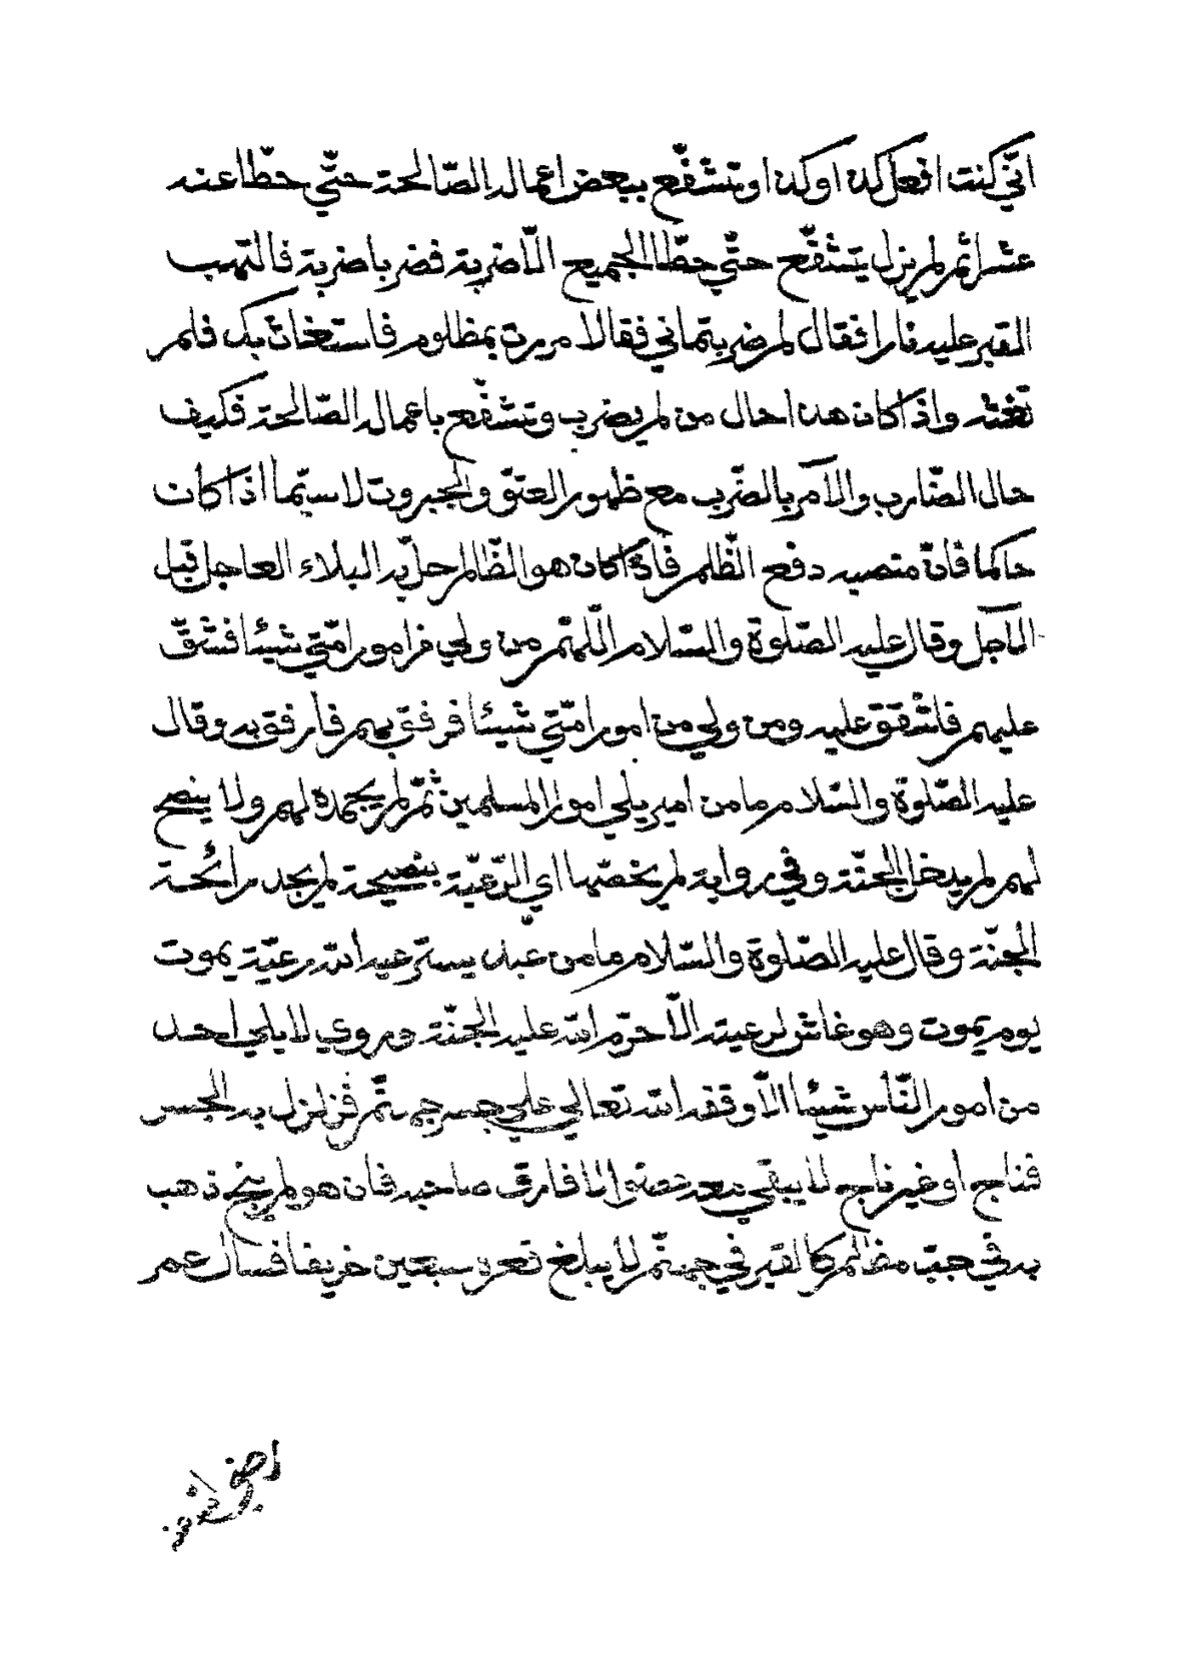 انّي كنت افعل كذا وكذا وتشفّع ببعض اعماله الصّالحة حتّي حطّا عنه
عشرا ثم لم يزل يتشفّع حتّي حطّا الجميع الّا ضربة فضرباه ضربة فالتهب
القبر عليه نارا فقال لم ضربتماني فقالا مررت بمظلوم فاستغاث بك فلم
تغثه واذا كان هذا حال من لم يضرب وتشفّع باعماله الصّالحة فكيف
حال الضّارب والآمر بالضّرب مع ظهور العتوّ والجبروت لا سيّما اذا كان
حاكما فانّ منصبه دفع الظّلم فاذا كان هو الظّالم حلّ به البلاء العاجل قبل
الآجل وقال عليه الصّلوة والسّلام اللّهمّ من ولي من امور امّتي شيئا فشقّ
عليهم فاشقق عليه ومن ولي من امور امّتي شيئا فرفق بهم فأرفق به وقال
عليه الصّلوة والسّلام ما من امير يلي امور المسلمين ثمّ لم يجهد لهم ولا ينصح
لهم لم يدخل الجنّة وفي رواية لم يخصّها اي الرّعيّة بنصيحة لم يجد رائحة
الجنّة وقال عليه الصّلوة والسّلام ما من عبد يسترعيه الله رعيّة يموت
يوم يموت وهو غاش لرعيته الّا حرّم الله عليه الجنّة وروي لا يلي احد
من امور النّاس شيئا الّا وقفه الله تعالي علي جسر جهنم فزلزل به الجسر
فناج او غير ناج لا يبقي معه عضو الا فارق صاحبه فان هو لم ينج ذهب
به في جبّ مظلم كالقبر في جهنّم لا يبلغ قعره سبعين خريفا فسأل عمر